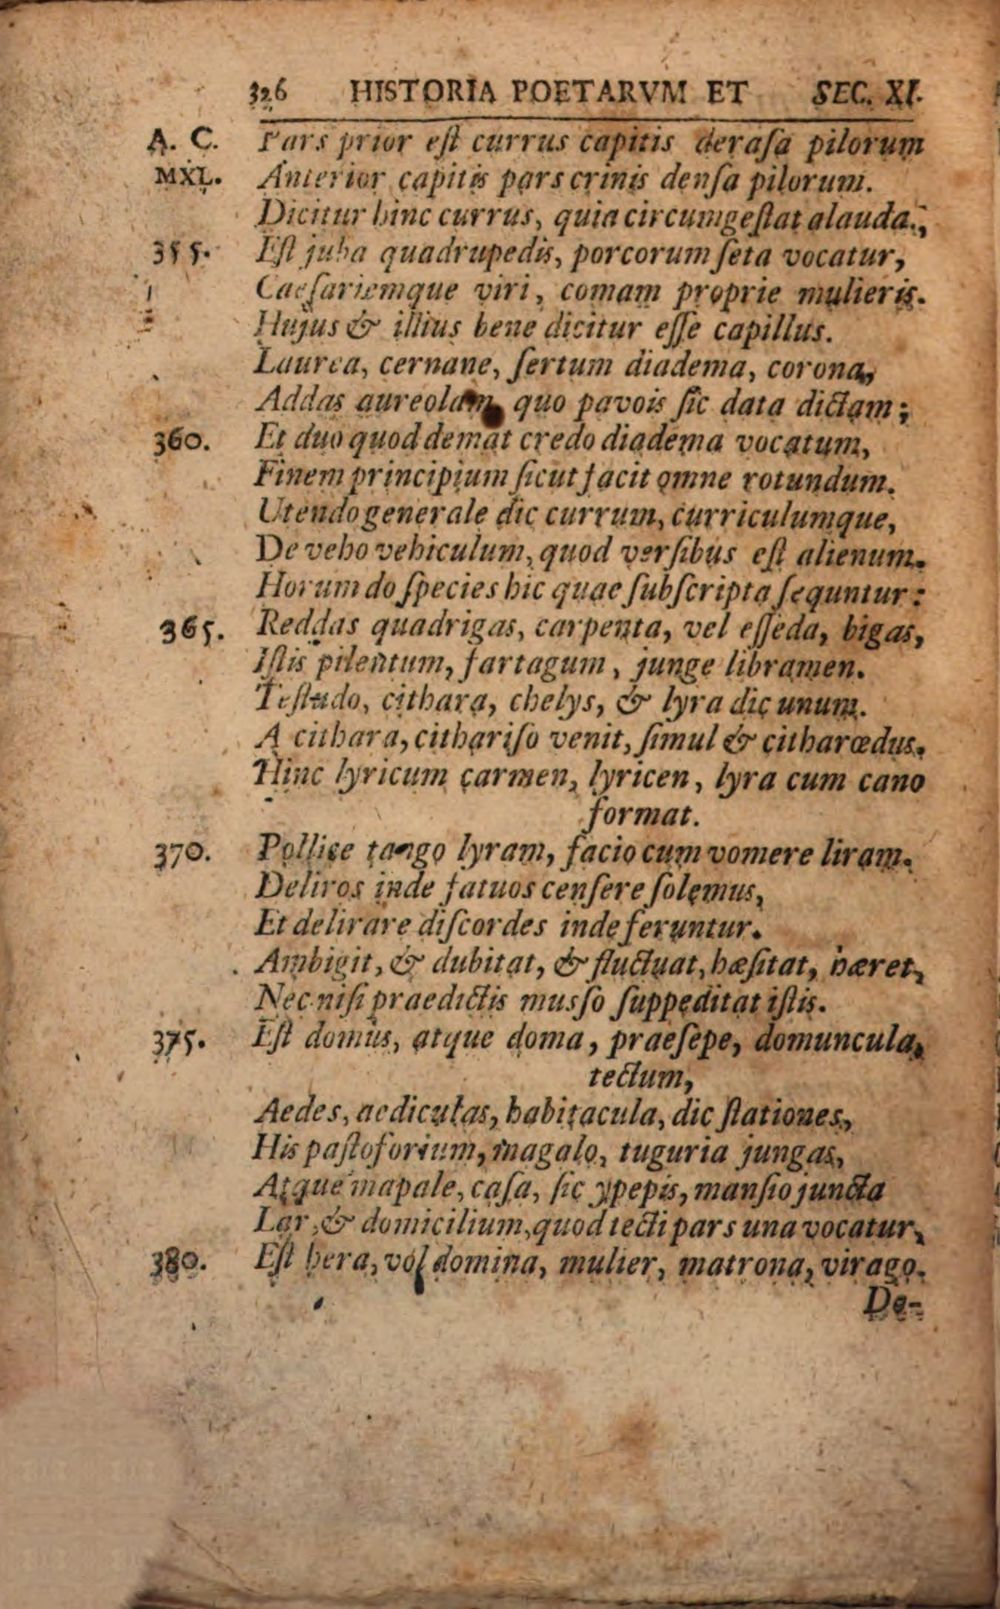 326 HISTORIA POETARVM ET SEC. XI.
A. C. Pars prior eſt currus capitis deraſa pilorum
MXL. Anterior capitis pars crinis denſa pilorum.
Dicitur hinc currus, quia circumgeſtat alauda.,
355. Eſt juba quadrupedis, porcorum ſeta vocatur,
Caeſariemque viri, comam proprie mulieris.
Hujus & illius bene dicitur eſſe capillus.
Laurea, cernane, ſertum diadema, corona,
Addas aureolam, quo pavois ſic data dictam;
360. Et duo quod demat credo diadema vocatum,
Finem principium ſicut facit omne rotundum.
Utendo generale dic currum, curriculumque,
De veho vehiculum, quod verſibus eſt alienum.
Horum do ſpecies hic quae ſubſcripta ſequntur:
365. Reddas quadrigas, carpenta, vel eſſeda, bigas,
Iſtis pilentum, ſartagum, junge libramen.
Teſtudo, cithara, chelys, & lyra dic unum.
A cithara, cithariſo venit, ſimul & citharœdus.
Hinc lyricum carmen, lyricen, lyra cum cano
format.
370. Pollice tango lyram, facio cum vomere liram.
Deliros inde fatuos cenſere ſolemus,
Et delirare diſcordes inde feruntur.
Ambigit, & dubitat, & fluctuat, hæſitat, hæret,
Nec niſi praedictis muſſo ſuppeditat iſtis.
375. Eſt domus, atque doma, praeſepe, domuncula,
tectum,
Aedes, aediculas, habitacula, dic ſtationes,
His paſtoforium, magalo, tuguria jungas,
Atque mapale, caſa, ſic ypepis, manſio juncta
Lar, & domicilium, quod tecti pars una vocatur,
380. Eſt hera, vol domina, mulier, matrona, virago.
De-